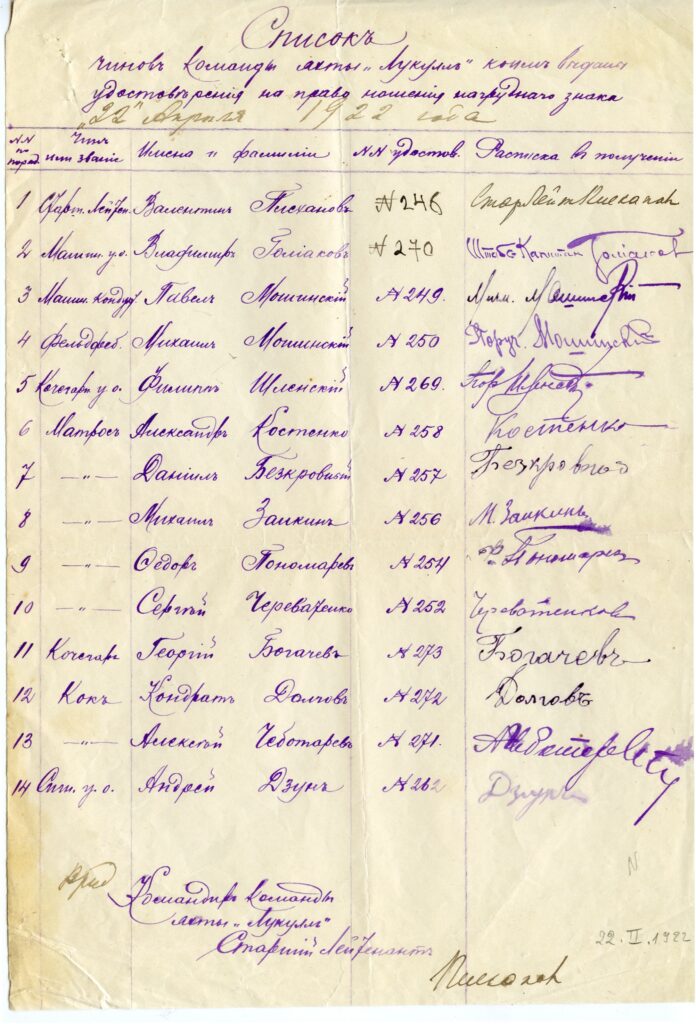 Списокъ
чиновъ команды яхты „Лукуллъ" коимъ выданы
удостовѣренія на право ношенія нагруднаго знака
„22" Апрѣля 1922 года
NN по поряд. Чинъ или званіе Имена и фамиліи NN удостов. Расписка в полученіи
1 Старш. Лейтен. Валентинъ Плехановъ N 246
2 Машин. у.о. Владимиръ Голіаковъ N 270 Штабс Капитан Голіаков
3 Машин. кондук Павелъ Мошинскій N 249. Мичм.
4 Фельдфеб. Михаилъ Мошинскій N 250 Поруч. Мошинскій
5 Кочегарн. у.о. Филиппъ Шленскій N 269.
6 Матросъ Александръ Костенко N 258 Костенко
7 —„— Даніилъ Безкровный N 257 Безкровный
8 —„— Михаилъ Заикинъ N 256 М. Заикинъ
9 —„— Ѳедоръ Пономаревъ N 254
10 —„— Сергѣй Череватенко N 252 Череватенков
11 Кочегаръ Георгій Богачевъ N 273 Богачевъ
12 Кокъ Кондратъ Долговъ N 272 Долговъ
13 —„— Алексѣй Чеботаревъ N 271.
14 Сигн. у.о. Андрей Дзунъ N 262
Врид Командиръ команды
яхты „Лукуллъ"
Старшій Лейтенантъ
N
22. II. 1922